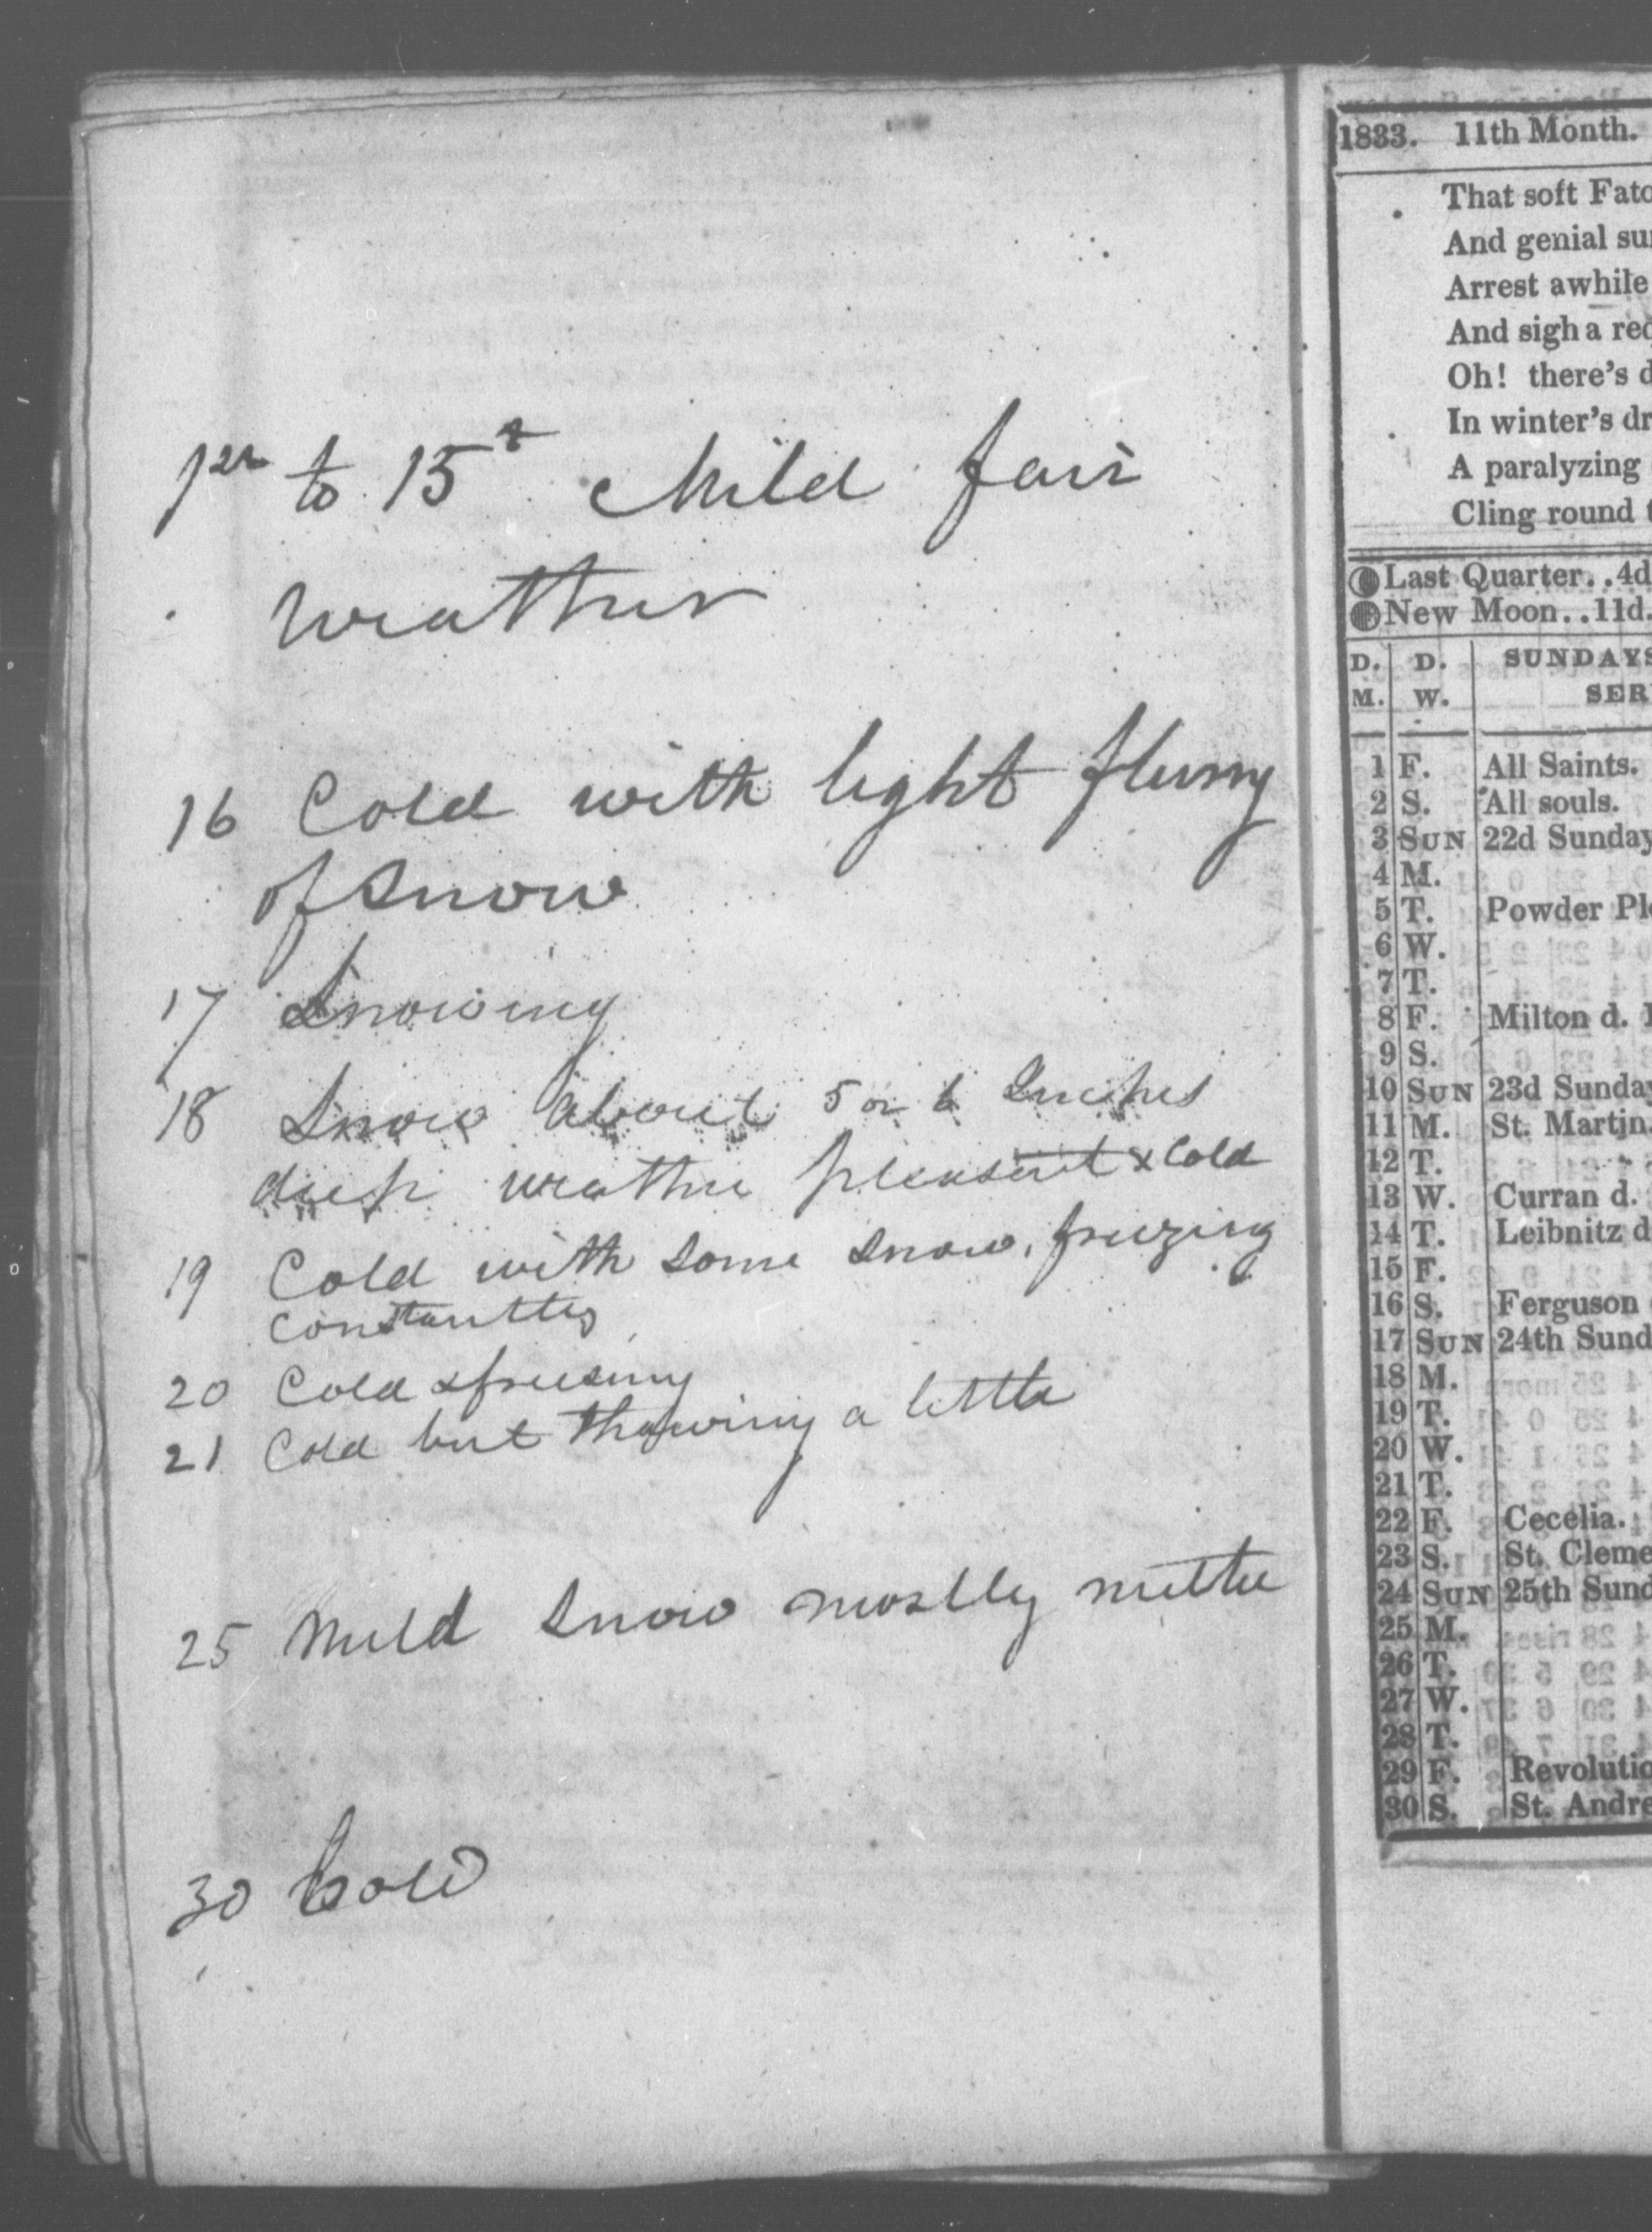 1st to 15th Mild fair
weather
16 Cold with light flurry
of Snow
17 Snowing
18 Snow about 5 or 6 Inches
deep weather pleasent & Cold
19 Cold with some snow, freezing
constantly
20 Cold & freesing
21 Cold but thawing a little
25 Mild Snow mostly
30 Cold
1833. 11th Month.
That soft
And genial
Arrest awhile
And sigh a
Oh! there's
In winter's
A paralyzing
Cling round
Last Quarter..4d
New Moon..11d.
D. D. SUNDAYS
M. W.
1 F. All Saints.
2 S. All souls.
3 SUN 22d Sunday
4 M.
5 T. Powder
6 W.
7 T.
8 F. Milton d.
9 S.
10 SUN 23d Sunday
11 M. St. Martin.
12 T.
13 W. Curran d.
14 T. Leibnitz d
15 F.
16 S. Ferguson
17 SUN 24th Sund
18 M.
19 T.
20 W.
21 T.
22 F. Cecelia.
23 S. St. Cleme
24 SUN 25th Sund
25 M.
26 T.
27 W.
28 T.
29 F. Revolutio
30 S. St. Andre